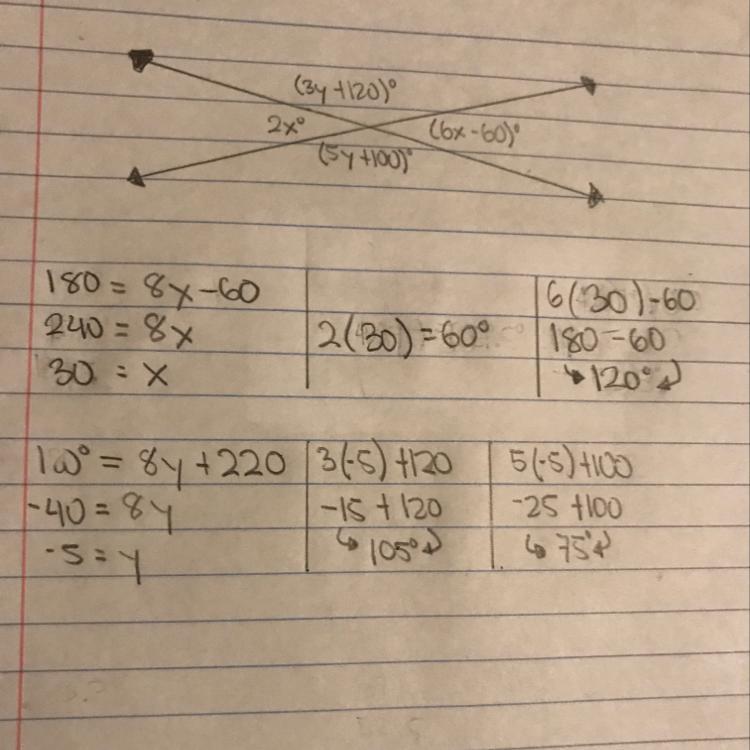 (3y+120)°
2x°
(6x-60)°
(5y+100)°
180 = 8x-60
240 = 8x
30 = x
2(30)=60°
6(30)-60
180-60
↳120°↲
= 8y+220
-40=8y
-5=y
3(-5)+120
-15+120
↳105°↲
5(-5)+100
-25+100
↳75°↲